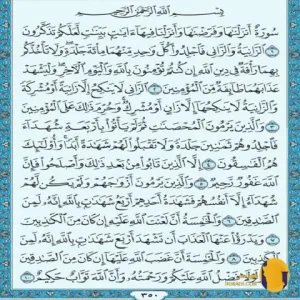 بِسْمِ اللَّهِ الرَّحْمَٰنِ الرَّحِيمِ
سُورَةٌ أَنزَلْنَٰهَا وَفَرَضْنَٰهَا وَأَنزَلْنَا فِيهَآ ءَايَٰتٍۭ بَيِّنَٰتٍ لَّعَلَّكُمْ تَذَكَّرُونَ
١ ٱلزَّانِيَةُ وَٱلزَّانِى فَٱجْلِدُوا۟ كُلَّ وَٰحِدٍ مِّنْهُمَا مِا۟ئَةَ جَلْدَةٍ وَلَا تَأْخُذْكُم
بِهِمَا رَأْفَةٌ فِى دِينِ ٱللَّهِ إِن كُنتُمْ تُؤْمِنُونَ بِٱللَّهِ وَٱلْيَوْمِ ٱلْءَاخِرِ وَلْيَشْهَدْ
عَذَابَهُمَا طَآئِفَةٌ مِّنَ ٱلْمُؤْمِنِينَ ٢ ٱلزَّانِى لَا يَنكِحُ إِلَّا زَانِيَةً أَوْ مُشْرِكَةً
وَٱلزَّانِيَةُ لَا يَنكِحُهَآ إِلَّا زَانٍ أَوْ مُشْرِكٌ وَحُرِّمَ ذَٰلِكَ عَلَى ٱلْمُؤْمِنِينَ
٣ وَٱلَّذِينَ يَرْمُونَ ٱلْمُحْصَنَٰتِ ثُمَّ لَمْ يَأْتُوا۟ بِأَرْبَعَةِ شُهَدَآءَ
فَٱجْلِدُوهُمْ ثَمَٰنِينَ جَلْدَةً وَلَا تَقْبَلُوا۟ لَهُمْ شَهَٰدَةً أَبَدًا وَأُو۟لَٰٓئِكَ
هُمُ ٱلْفَٰسِقُونَ ٤ إِلَّا ٱلَّذِينَ تَابُوا۟ مِنۢ بَعْدِ ذَٰلِكَ وَأَصْلَحُوا۟ فَإِنَّ
ٱللَّهَ غَفُورٌ رَّحِيمٌ ٥ وَٱلَّذِينَ يَرْمُونَ أَزْوَٰجَهُمْ وَلَمْ يَكُن لَّهُمْ
شُهَدَآءُ إِلَّآ أَنفُسُهُمْ فَشَهَٰدَةُ أَحَدِهِمْ أَرْبَعُ شَهَٰدَٰتٍۭ بِٱللَّهِ إِنَّهُۥ لَمِنَ
ٱلصَّٰدِقِينَ ٦ وَٱلْخَٰمِسَةُ أَنَّ لَعْنَتَ ٱللَّهِ عَلَيْهِ إِن كَانَ مِنَ ٱلْكَٰذِبِينَ
٧ وَيَدْرَؤُا۟ عَنْهَا ٱلْعَذَابَ أَن تَشْهَدَ أَرْبَعَ شَهَٰدَٰتٍۭ بِٱللَّهِ إِنَّهُۥ لَمِنَ
ٱلْكَٰذِبِينَ ٨ وَٱلْخَٰمِسَةَ أَنَّ غَضَبَ ٱللَّهِ عَلَيْهَآ إِن كَانَ مِنَ ٱلصَّٰدِقِينَ
فَضْلُ ٱللَّهِ عَلَيْكُمْ وَرَحْمَتُهُۥ وَأَنَّ ٱللَّهَ تَوَّابٌ حَكِيمٌ
٣٥٠